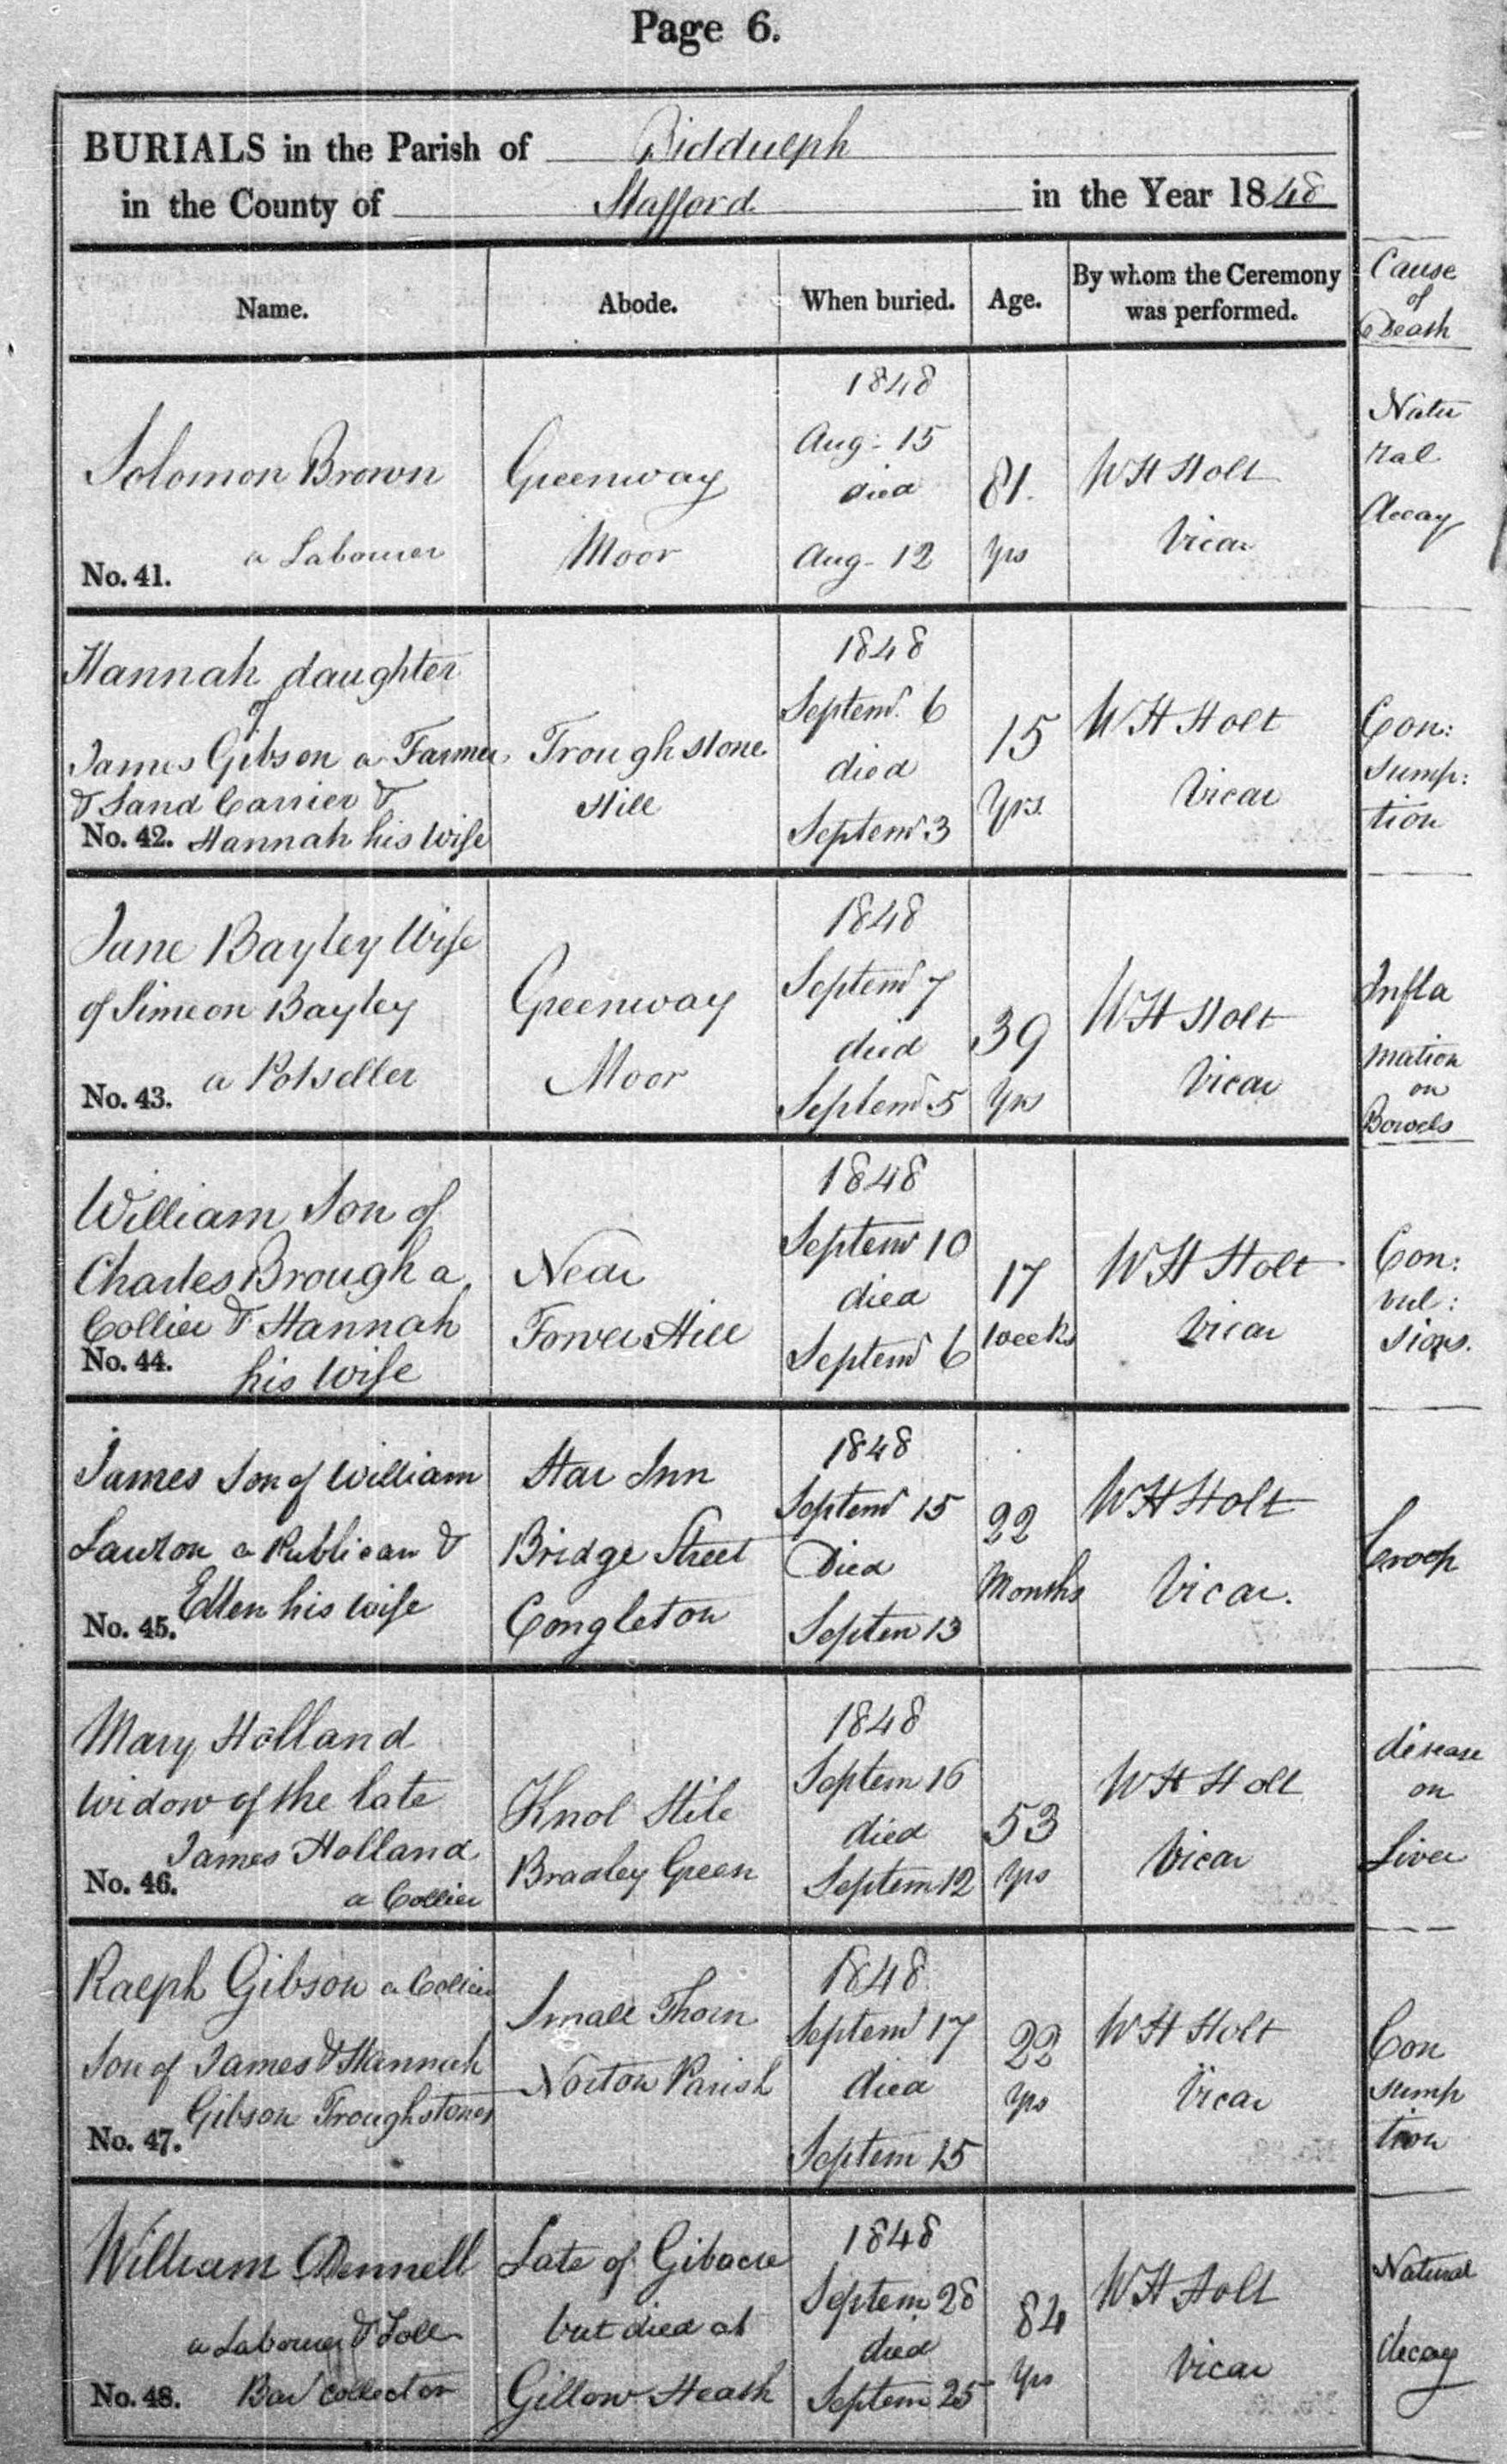 Page 6.
BURIALS in the Parish of Biddulph
in the County of Stafford in the Year 1848
Name.
Abode.
When buried.
Age.
By whom the Ceremony
was performed.
Cause
of
Death
Solomon Brown
a Labourer
No. 41.
Greenway
Moor
1848
Aug: 15
died
Aug - 12
81.
Yrs
WH Holt
Vicar
Natu
ral
decay
Hannah daughter
of
James Gibson a Farmer
& Sand Carrier &
No. 42. Hannah his Wife
Troughstone
Hill
1848
Septemr. 6
died
Septemr 3
15
Yrs.
WH Holt
Vicar
Con:
sump:
tion
Jane Bayley Wife
of Simeon Bayley
a Potseller
No. 43.
Greenway
Moor
1848
Septemr 7
died
Septemr 5
39
Yrs
WH Holt
Vicar
Infla
mation
on
Bowels
William Son of
Charles Brough a
Collier & Hannah
No. 44.
his Wife
Near
Tower Hill
1848
Septemr 10
died
Septemr 6
17
weeks
WH Holt
Vicar
Con:
vul:
sions.
James Son of William
Lawton a Publican &
Ellen his wife
No. 45.
Star Inn
Bridge Street
Congleton
1848
Septemr 15
Died
Septem 13
22
Months
WH Holt
Vicar.
Croop
Mary Holland
Widow of the late
James Holland
No. 46.
a Collier
Knol Stile
Bradley Green
1848
Septem 16
died
Septem 12
53
Yrs
WH Holt
Vicar
disease
on
Liver
Ralph Gibson a Collier
Son of James & Hannah
Gibson Troughstones
No. 47.
Small Thorn
Norton Parish
1848
Septemr 17
died
Septem 15
22
Yrs
WH Holt
Vicar
Con
sump
tion
William
a Labourer & Toll
No. 48. Bar Collector
Late of Gibacre
but died at
Gillow Heath
1848
Septem 28
died
Septem 25
84
Yrs
WH Holt
Vicar
Natural
decay